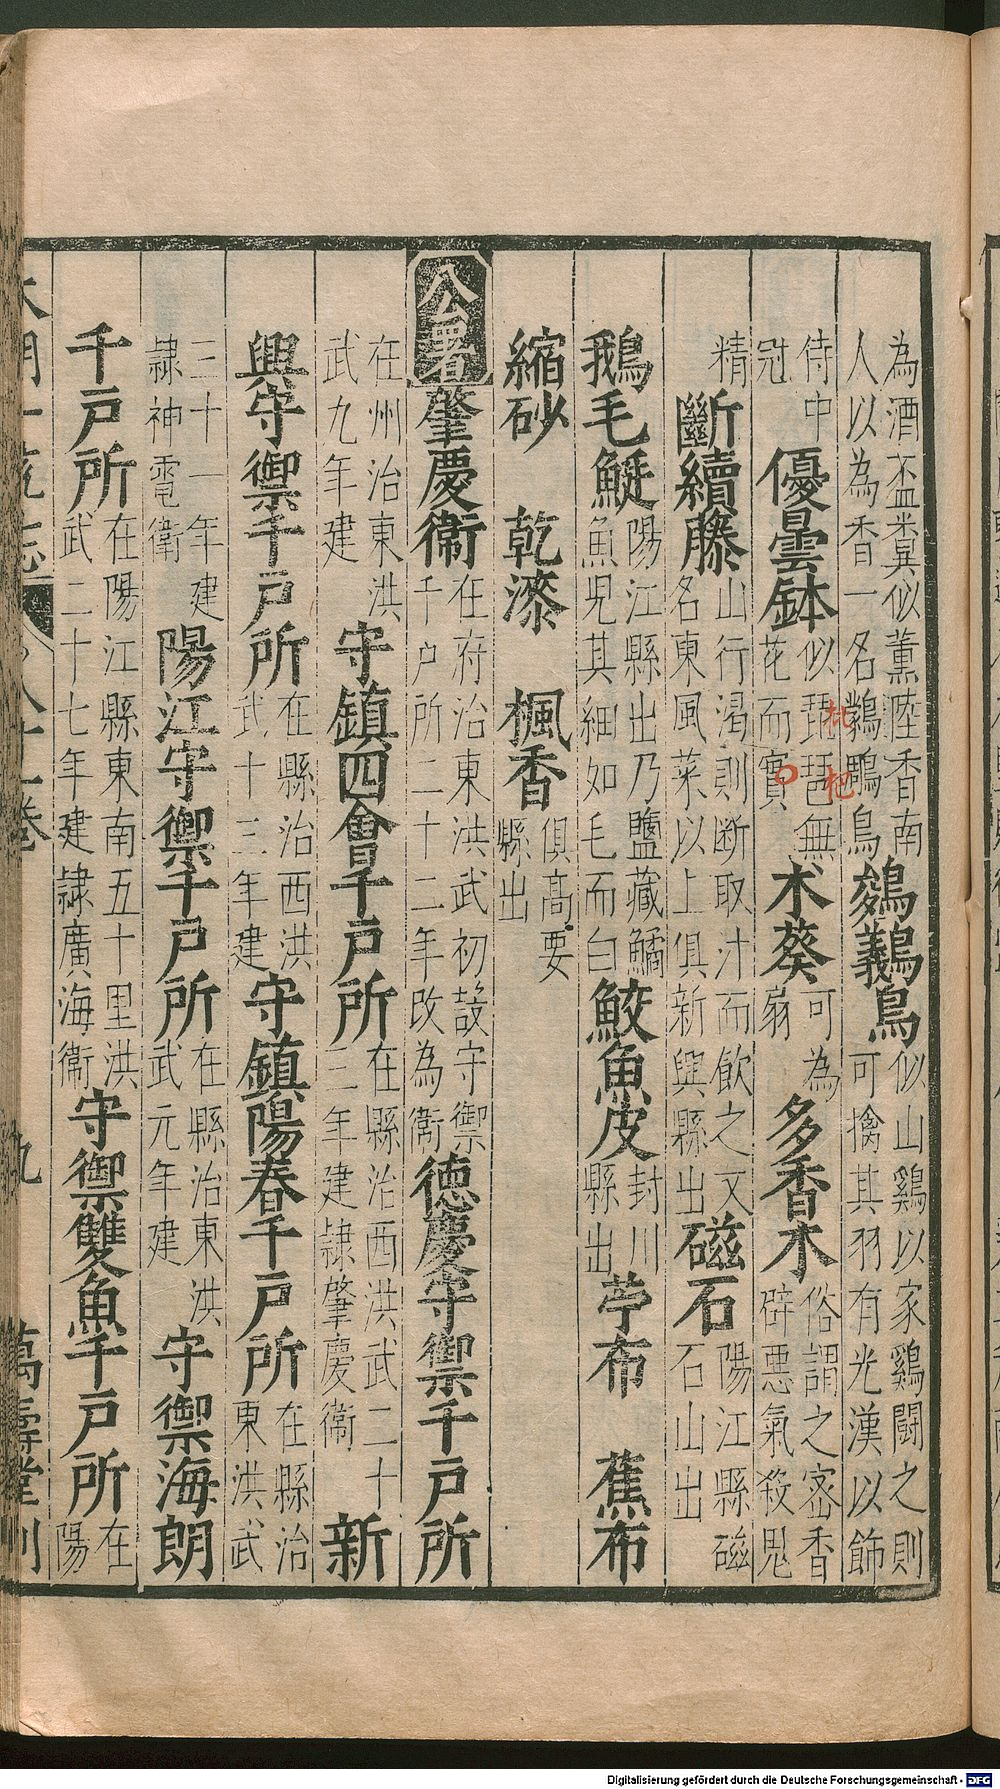 為酒盃糞似薰陸香南
人以為香一名鷯鶥鳥
鵕䴊鳥
似山鷄以家鷄鬪之則
可擒其羽有光漢以飾
侍中
冠
優曇鉢
似琵琶無
花而實
枇杷
木葵
可為
扇
多香木
俗謂之宻香
辟惡氣殺鬼
精
斷續藤
山行渴則断取汁而飲之又
名東風菜以上俱新興縣出
磁石
陽江縣磁
石山出
鵝毛鯅
陽江縣出乃鹽藏鱊
魚兒其細如毛而白
鮫魚皮
封川
縣出
苧布 蕉布
縮砂 乾漆 楓香
俱髙要
縣出
公署
肇慶衞
在府治東洪武初設守禦
千户所二十二年改為衞
德慶守禦千戸所
在州治東洪
武九年建
守鎮四會千戸所
在縣治西洪武二十
三年建隷肇慶衞
新
興守禦千戸所
在縣治西洪
武十三年建
守鎮陽春千戸所
在縣治
東洪武
三十一年建
隷神電衞
陽江守禦千戸所
在縣治東洪
武元年建
守禦海朗
千戸所
在陽江縣東南五十里洪
武二十七年建隷廣海衞
守禦雙魚千戸所
在
陽
大明一統志 八十一卷 九 萬壽堂刊
Digitalisierung gefördert durch die Deutsche Forschungsgemeinschaft - DFG